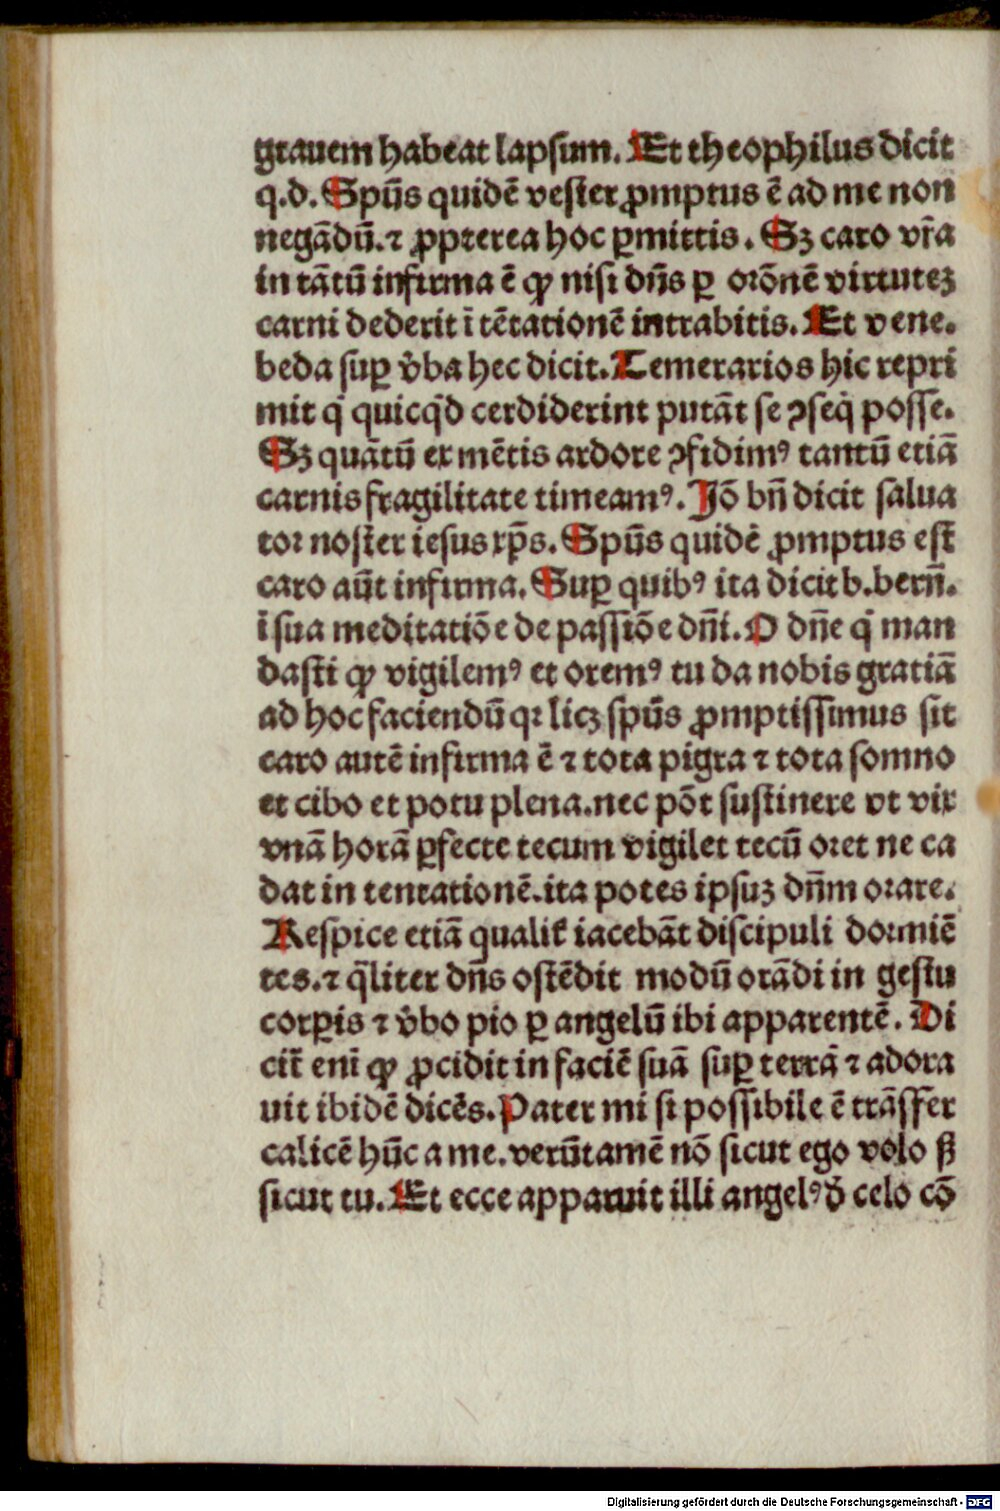 grauem habeat lapsum. Et theophilus dicit
q.d. Spūs quidē vester ꝓmptus ē ad me non
negādū.⁊ ꝓpterea hoc ꝑmittis. Sꝫ caro vr̄a
in tātū infirma ē ꝙ nisi dn̄s ꝑ orōnē virtuteꝫ
carni dederit ī tētationē intrabitis. Et vene.
beda suꝑ v̓ba hec dicit. Temerarios hic repri
mit qͥ quicqͥd cerdiderint putāt se ꝯseqͥ posse.
Sꝫ quātū ex mētis ardore ꝯfidimꝰ tantū etiā
carnis fragilitate timeamꝰ. Jō bn̄ dicit salua
tor noster iesus xp̄s. Spūs quidē ꝓmptus est
caro aūt infirma. Suꝑ quibꝰ ita dicit b.bern̄.
ī sua meditatiōe de passiōe dn̄i. O dn̄e qͥ man
dasti ꝙ vigilemꝰ et oremꝰ tu da nobis gratiā
ad hoc faciendū qꝛ licꝫ spūs ꝓmptissimus sit
caro autē infirma ē ⁊ tota pigra ⁊ tota somno
et cibo et potu plena.nec pōt sustinere vt vix
vnā horā ꝑfecte tecum vigilet tecū oret ne ca
dat in tentationē.ita potes ipsuꝫ dn̄m orare.
Respice etiā qualiṫ iacebāt discipuli dormiē
tes.⁊ q̄liter dn̄s ostēdit modū orādi in gestu
corꝑis ⁊ v̓bo pio ꝑ angelū ibi apparentē. Di
cit̄ eni̅ ꝙ ꝓcidit in faciē suā suꝑ terrā ⁊ adora
uit ibidē dicēs. Pater mi si possibile ē trāsfer
calicē hūc a me.verūtamē nō sicut ego volo sꝫ
sicut tu. Et ecce apparuit illi angelꝰ d̓ celo cō
Digitalisierung gefördert durch die Deutsche Forschungsgemeinschaft - DFG